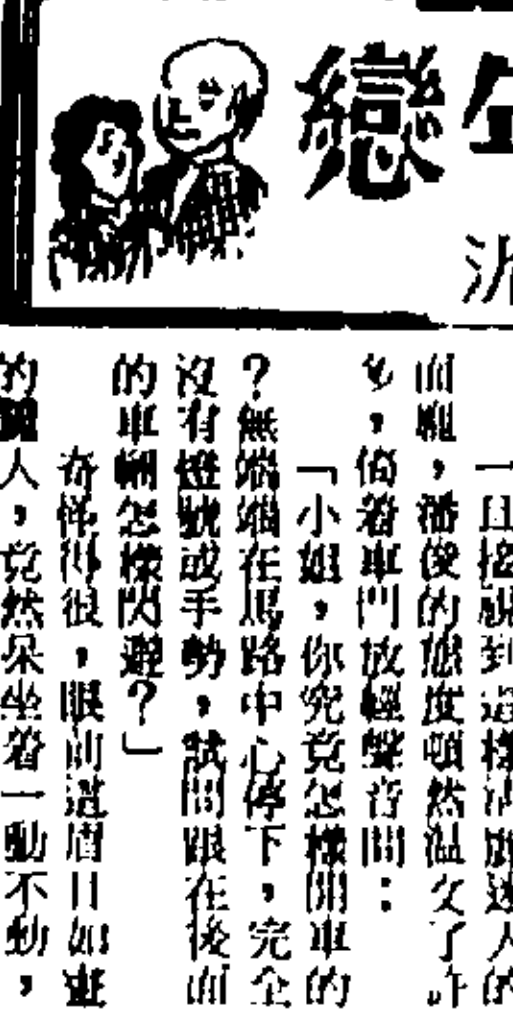 戀
一旦接觸到這樣清麗迷人的
面龐,潘俊的態度頓然溫文了許
多,倚着車門放輕聲音問:
「小姐,你究竟怎樣開車的
?無端端在馬路中心停下,完全
沒有燈號或手勢,試問跟在後面
的車輛怎樣閃避?」
奇怪得很,眼前這眉目如畫
的麗人,竟然呆坐着一動不動,